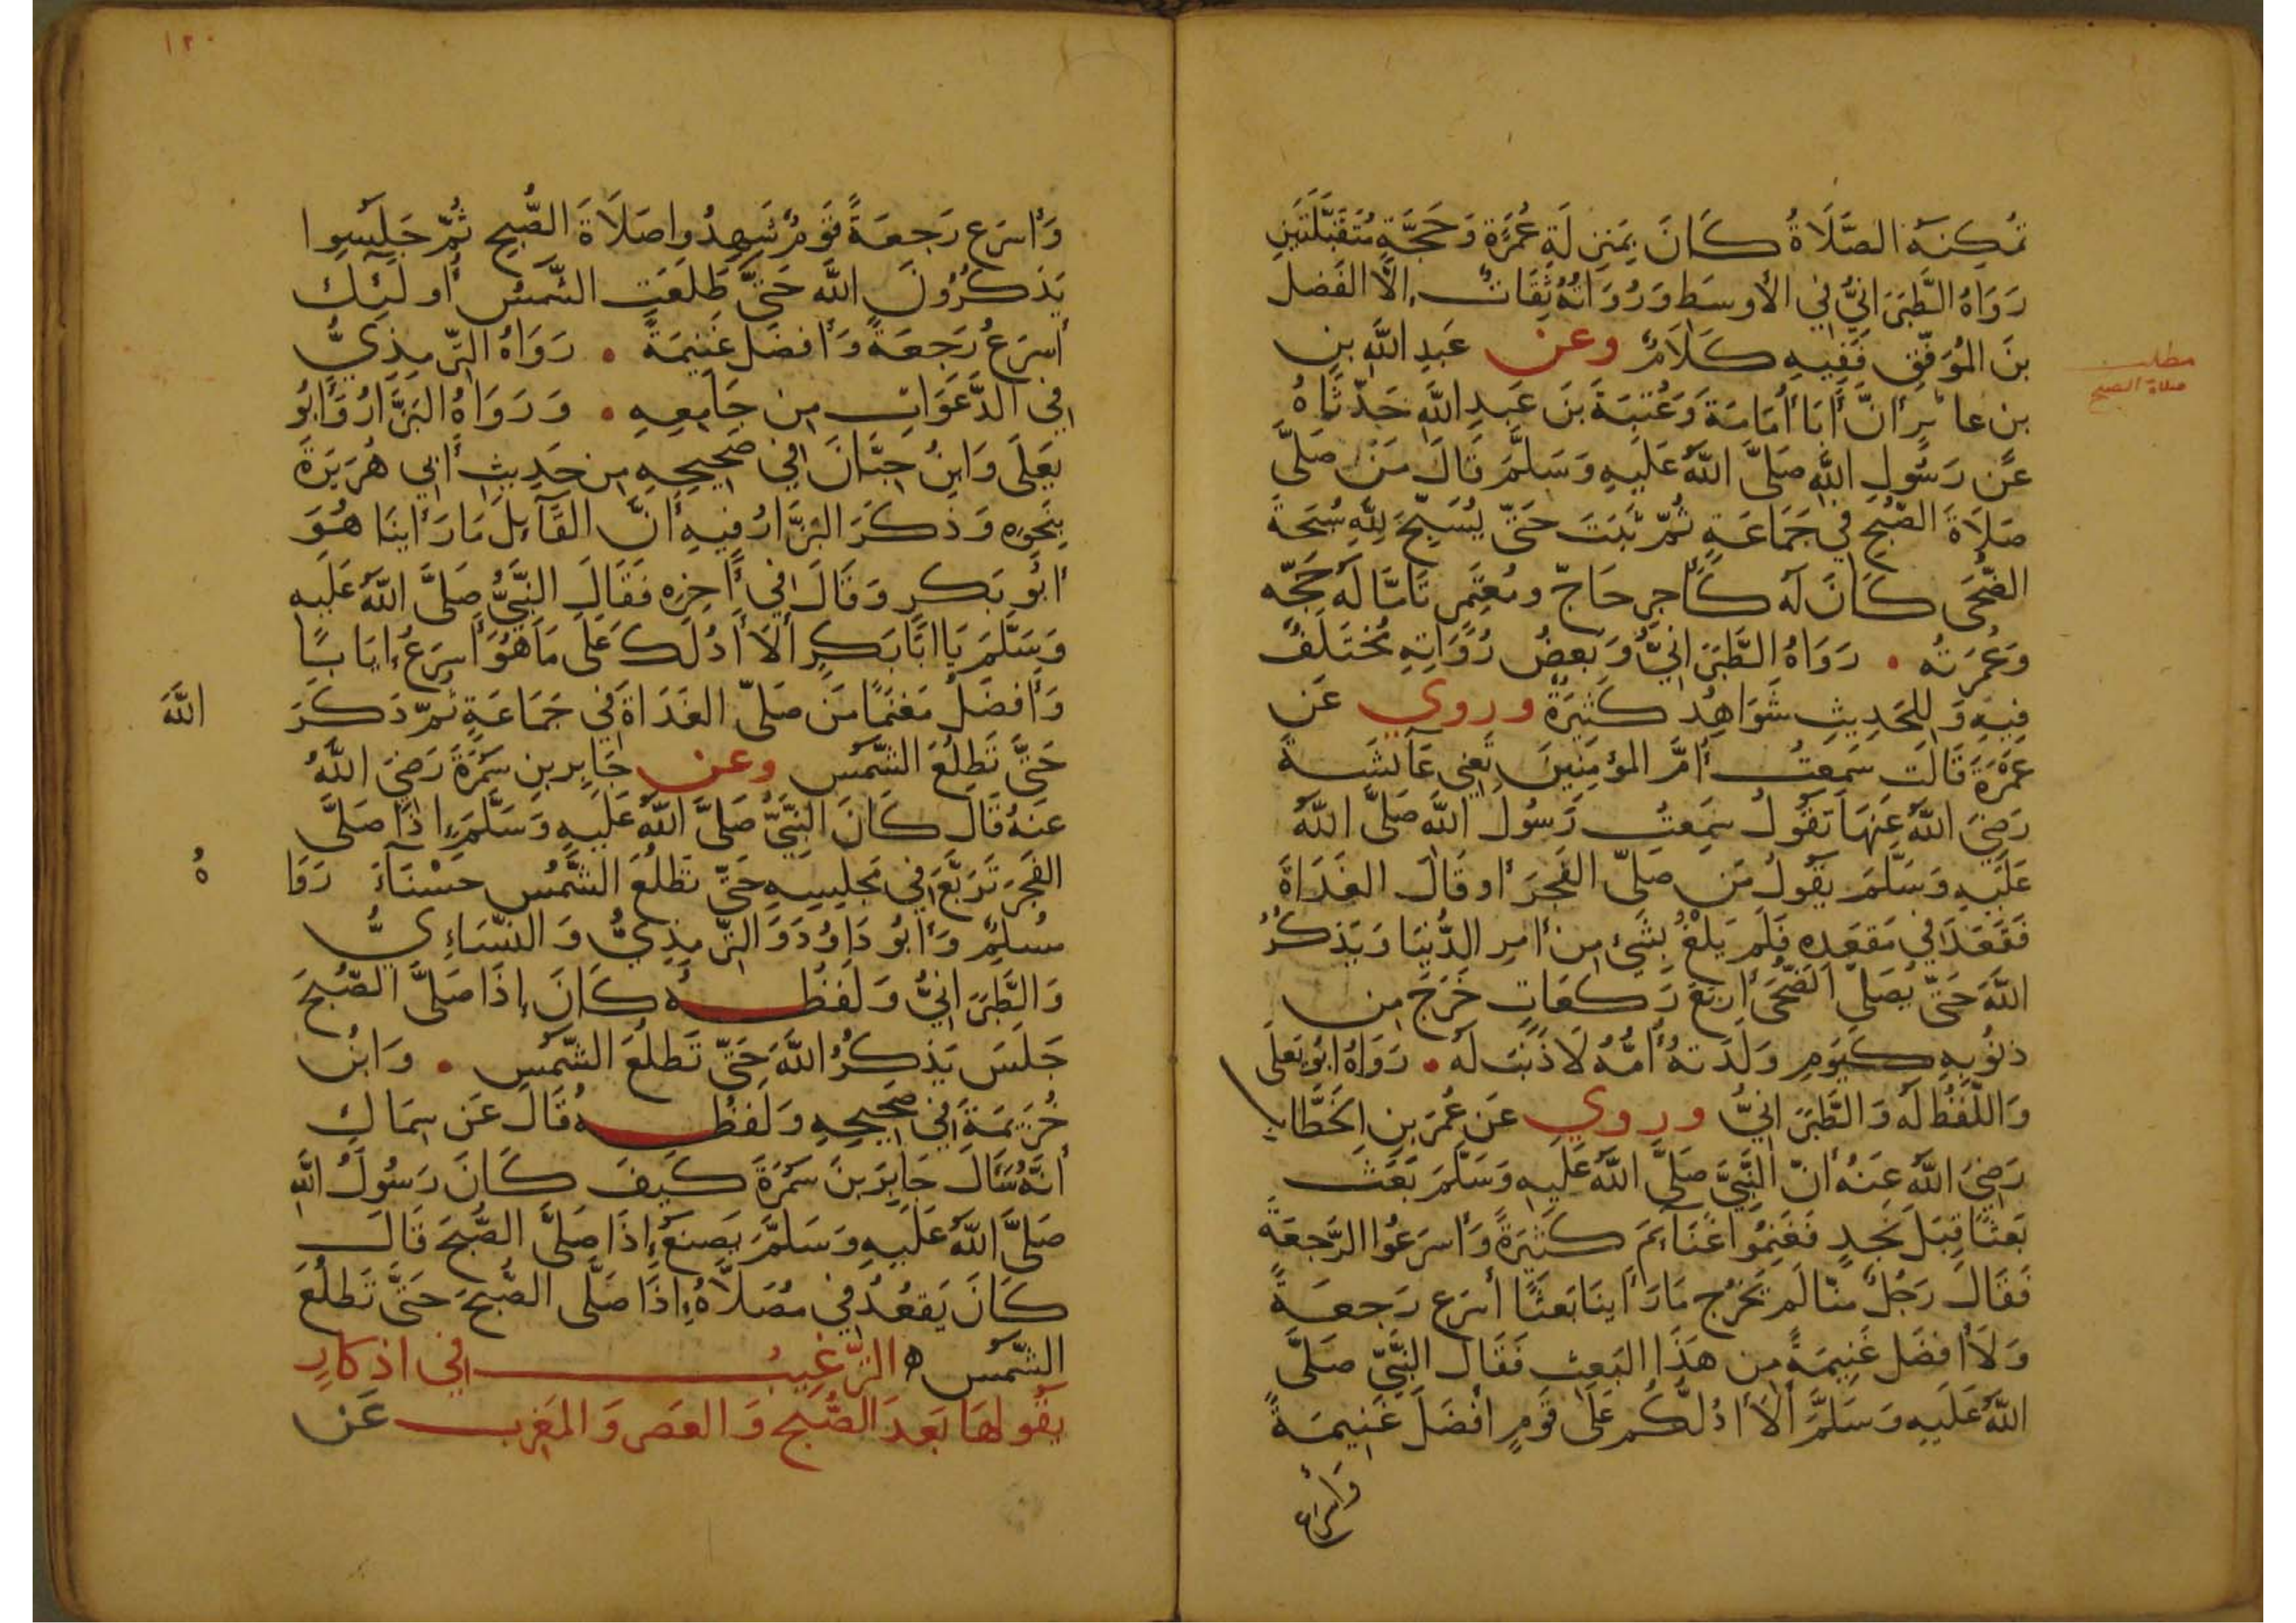 تُمكِنَهُ الصَّلَاةُ كَانَ بِمَنزِلَةِ عُمْرَةٍ وَحَجَّةٍ مُتَقَبَّلَتَينِ
رَوَاهُ الطَّبَرَانِيُّ فِي الأَوسَط وَرُوَاتُهُ ثِقَاتٌ إِلَّا الفَضل
بنَ المُوَفّقِ فَفِيهِ كَلَامٌ وعن عَبدِ اللَّهِ بنِ
بن عابرٍ أَنَّ أَبَا أُمَامَةَ وَعُتبَةَ بنَ عَبدِ اللَّهِ حَدّثَاهُ
عَن رَسُولِ اللَّهِ صَلَّى اللَّهُ عَلَيهِ وَسَلَّمَ قَالَ مَن صَلَّى
صَلَاةَ الصُّبحِ فِي جَمَاعَةٍ ثُمّ ثَبَتَ حَتّى يُسَبِّحَ لِلَّهِ سُبحَةَ
الضُّحَى كَانَ لَهُ كَأَجرِ حَاجّ ومُعتَمِرٍ تَامًّا لَهُ حَجّه
وَعُمرَتُه . رَوَاهُ الطَّبَرَانِيُّ وَبَعضُ رُوَاتِهِ مُختَلَفٌ
فِيهِ وَلِلحَدِيثِ شَوَاهِدُ كَثِيَرةٌ وروي عَن
عَمْرَةَ قَالَت سَمِعتُ أُمَّ المؤمِنِينَ تَعنِي عَائشَةَ
رَضِيَ اللَّهُ عَنهَا تَقُولُ سَمِعتُ رَسُولَ اللَّه صَلَّى اللَّهُ
عَلَيهِ وَسَلَّمَ يَقُولُ مَن صَلّى الفَجرَ أَو قَالَ الغَدَاةَ
فَقَعَدَ فِي مَقعَدِه فَلَم يَلْغُ بِشَيءٍ مِن أَمرِ الدُّنيَا وَيَذكُرُ
اللَّهَ حَتّى يُصَلِّيَ الضُّحَى أَربَعَ رَكعَاتٍ خَرَجَ مِن
ذنُوبِهِ كَيَومِ وَلَدَتهُ أُمُّهُ لَا ذَنبَ لَه . رَوَاهُ ابُو يَعلَى
وَاللَّفظُ لَه وَالطَّبَرَانِيُّ وروي عَن عُمَرَ بنِ الخَطَّابِ
رَضِيَ اللَّهُ عَنهُ أَنّ النَّبِيَّ صَلَّى اللَّهُ عَلَيهِ وَسَلَّمَ بَعَثَ
بَعثًا قِبَلَ نَجدٍ فَغَنِمُوا غَنَائِمَ كَثِيَرةً وَأَسرَعُوا الرَّجعَةَ
فَقَالَ رَجُلٌ مِنّا لَم يَخرُج مَا رَأَينَا بَعثًا أَسرَع رَجعَةً
وَلَا أَفضَل غَنِيمَةً مِن هَذَا البَعثِ فَقَالَ النَّبِيّ صَلَّى
اللَّهُ عَلَيهِ وَسَلَّمَ أَلَا أَدُلُّكُم عَلَى قَومٍ أَفضَلَ غَنِيمَةً
وَأَسرَع
مطلب
صلاة الصبح
١٢٠
وَأَسرَع رَجعَةً قَومٌ شَهِدُوا صَلَاةَ الصُّبحِ ثُمّ جَلَسُوا
يَذكُرُونَ اللَّه حَتَّى طَلَعَتِ الشَّمسُ أُولَئِكَ
أَسرَعُ رَجعَةً وَأَفضَل غَنِيمَةً . رَوَاهُ التِّرمِذِيُّ
فِي الدَّعَوَاتِ مِن جَامِعِهِ . وَرَوَاهُ البَزَّارُ وَأَبُو
يَعلَى وَابنُ حِبَّانَ فِي صَحِيحِهِ مِن حَدِيثِ أَبِي هُرَيرَةَ
بِنَحوِهِ وَذَكَرَ البَزّارُ فِيهِ أَنَّ القَائِلَ مَا رَأَينَا هُوَ
أَبُو بَكرٍ وَقَالَ فِي آخِرِه فَقَالَ النَّبِيُّ صَلَّى اللَّهُ عَلَيهِ
وَسَلَّمَ يَا ابَا بَكرٍ أَلَا أَدُلّكَ عَلَى مَا هُوَ أَسرَعُ إِيَابًا
وَأَفضَلُ مَغنَمًا مَن صَلّى الغَدَاةَ فِي جَمَاعَةٍ ثُمّ ذَكَرَ
اللَّهَ
حَتَّى تَطلُعَ الشَّمسُ وعن جَابِرِ بنِ سَمُرَةَ رَضِيَ اللَّهُ
عَنهُ قَالَ كَانَ النَّبِيُّ صَلَّى اللَّهُ عَلَيهِ وَسَلَّمَ إِذَا صَلَّى
الفَجرَ تَرَبَّعَ فِي مَجلِسِهِ حَتّى تَطلُعَ الشَّمسُ حَسْنَاءَ رَوَا
هُ
مُسلِمٌ وَأَبُو دَاوُدَ وَالتِّرمِذِيُّ وَالنَّسَاءِيُّ
وَالطَّبَرَانِيُّ وَلَفظُهُ كَانَ إِذَا صَلَّى الصُّبحَ
جَلَسَ يَذكُرُ اللَّهَ حَتّى تَطلُعَ الشَّمسُ . وَابنُ
خُزَيمَةَ فِي صَحِيحِهِ وَلَفظُهُ قَالَ عَن سِمَاكٍ
أَنَّهُ سَأَلَ جَابِرَ بنَ سَمُرَةَ كَيفَ كَانَ رَسُولُ اللَّهِ
صَلَّى اللَّهُ عَلَيهِ وَسَلَّمَ يَصنَعُ إِذَا صَلَّى الصُّبحَ قَالَ
كَانَ يَقعُدُ فِي مُصَلَّاهُ إِذَا صَلَّى الصُّبحَ حَتَّى تَطلُعَ
الشَّمسُ ه التّرغِيبُ فِي اذكارِ
يَقُولهَا بَعدَ الصُّبحِ وَالعَصرِ وَالمَغرِبِ عَن